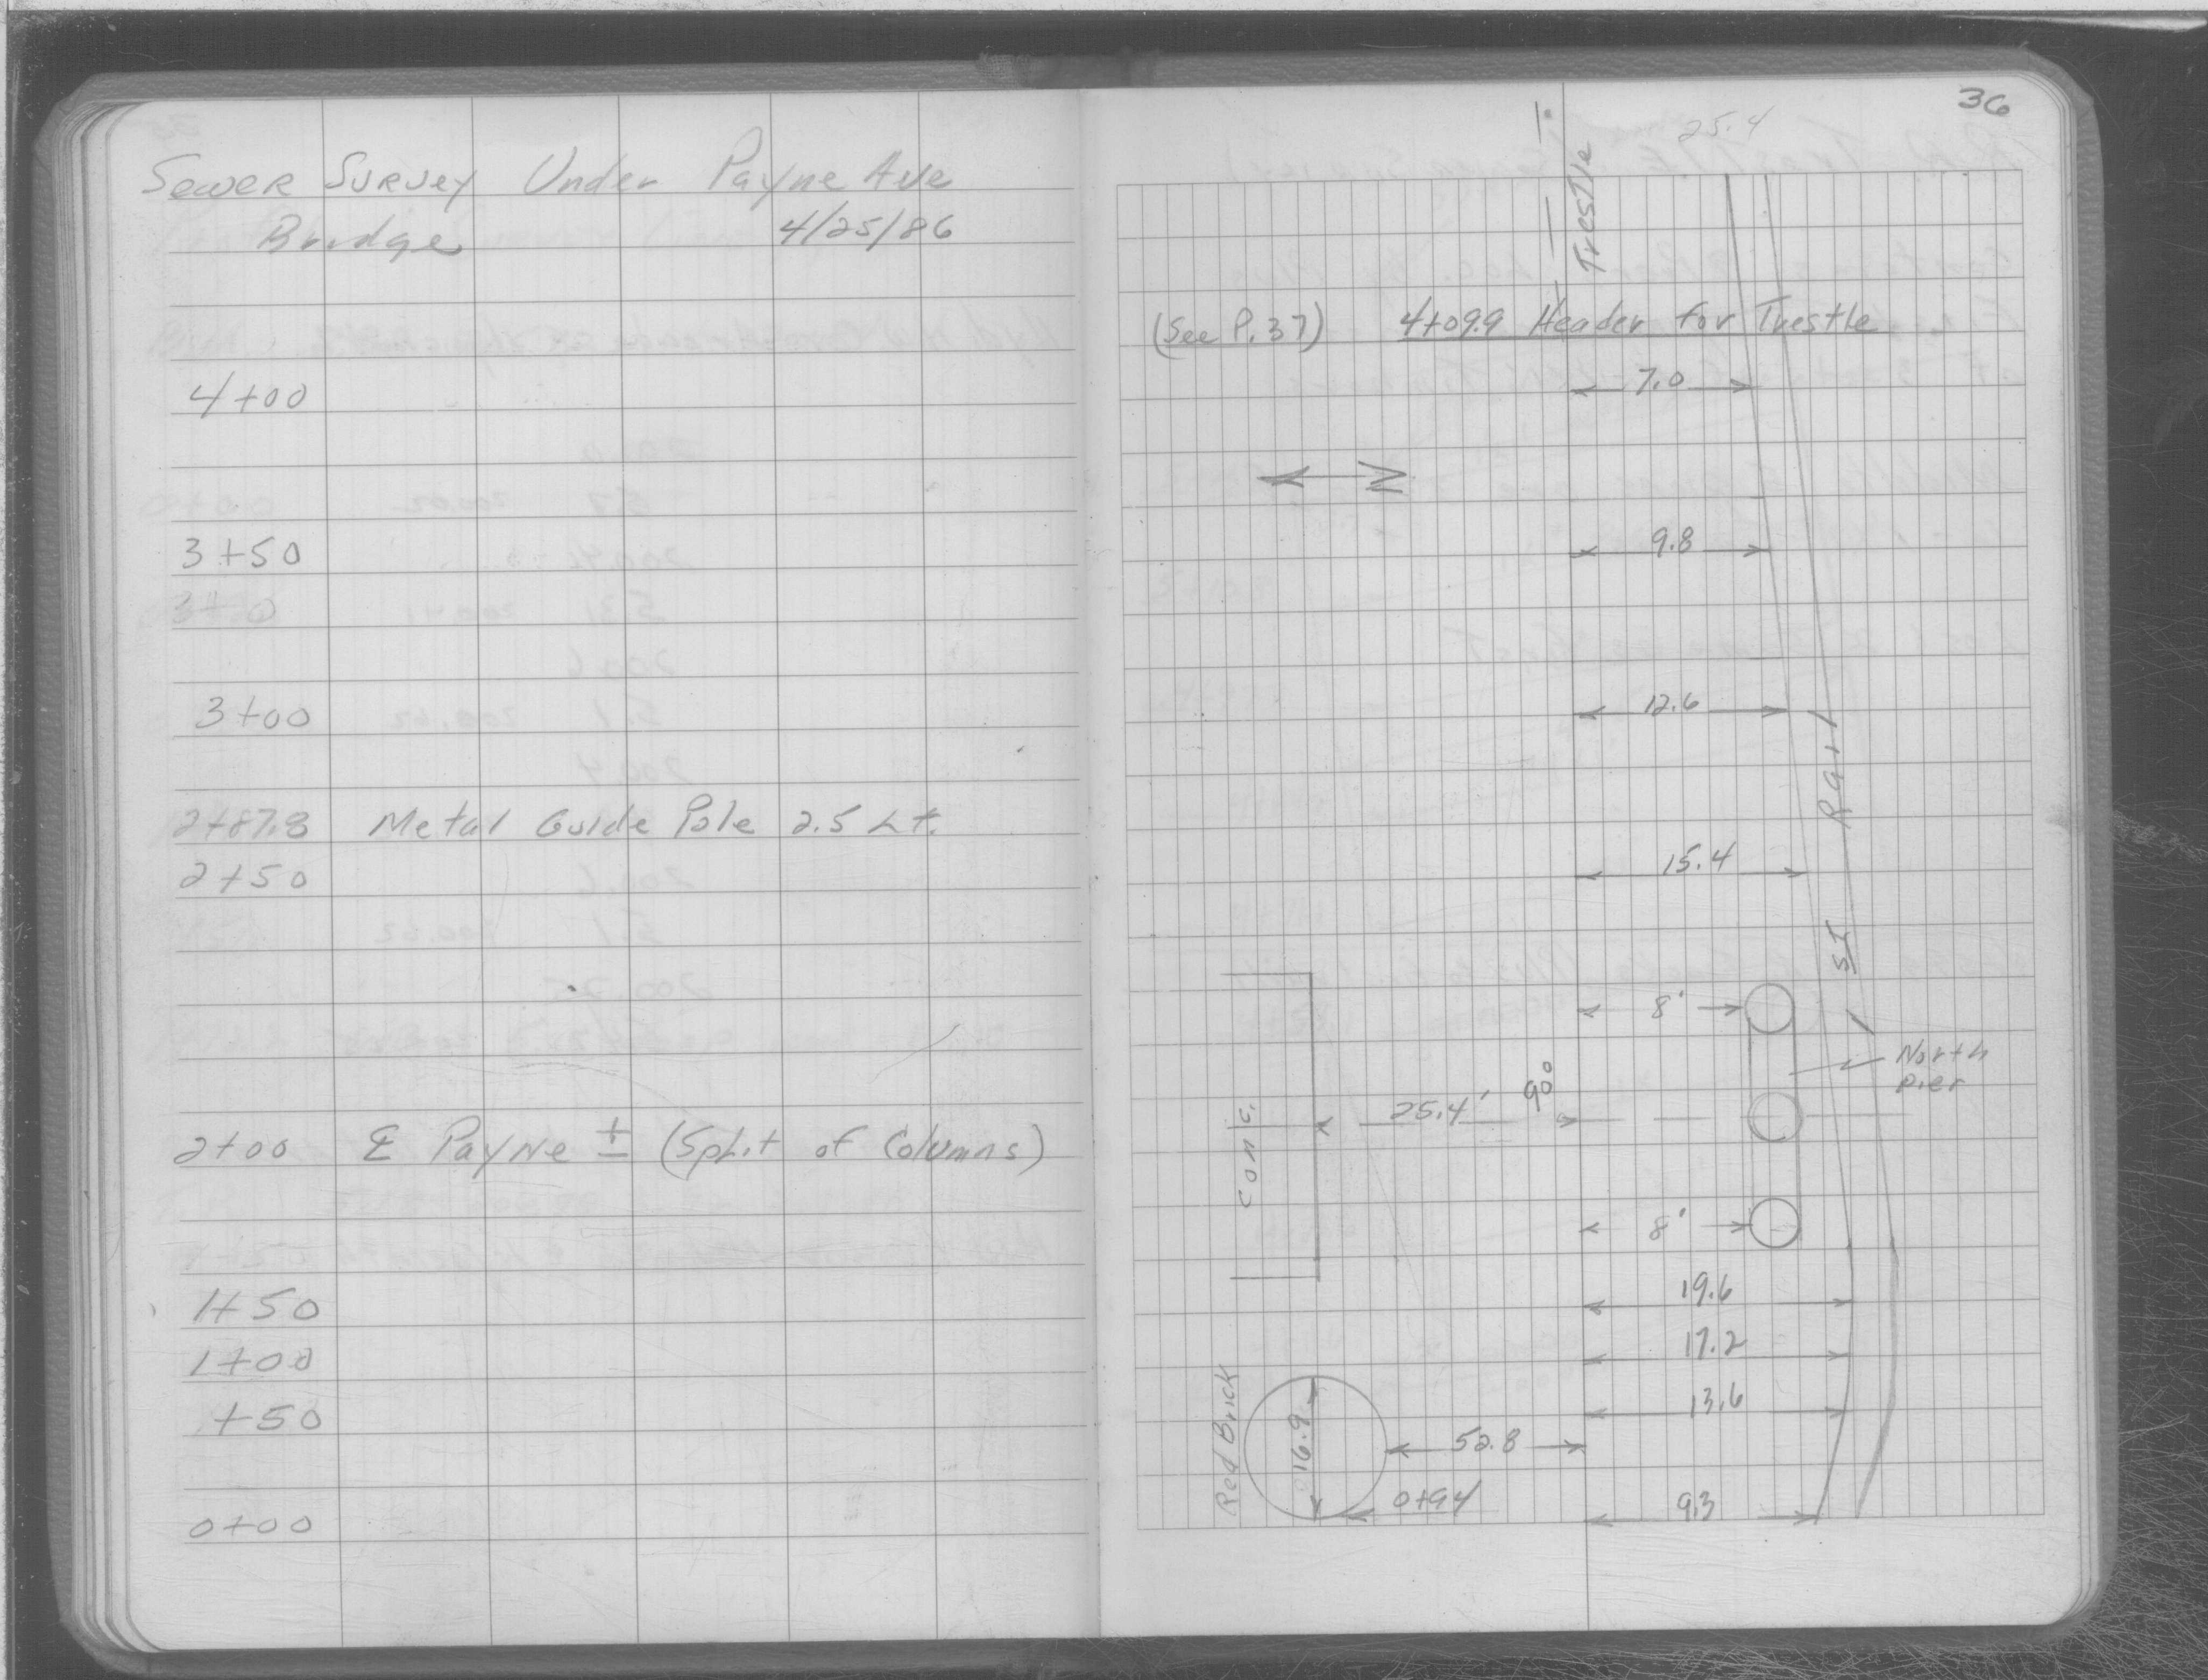 Sewer Survey Under Payne Ave
Bridge 4/25/86
4+00
3+50
3+00
2+87.8 Metal Guide Pole 2.5 Lt.
2+50
2+00 ₠ Payne ± (Split of Columns)
1+50
1+00
+50
0+00
36
25.4
Trestle
(See P.37) 4+09.9 Header for Trestle
7.0
N
9.8
12.6
Rail
15.4
8'
North
Pier
25.4' 90°
Conc.
8'
19.6
17.2
13.6
Red Brick
16.9
52.8
0+94
9.3